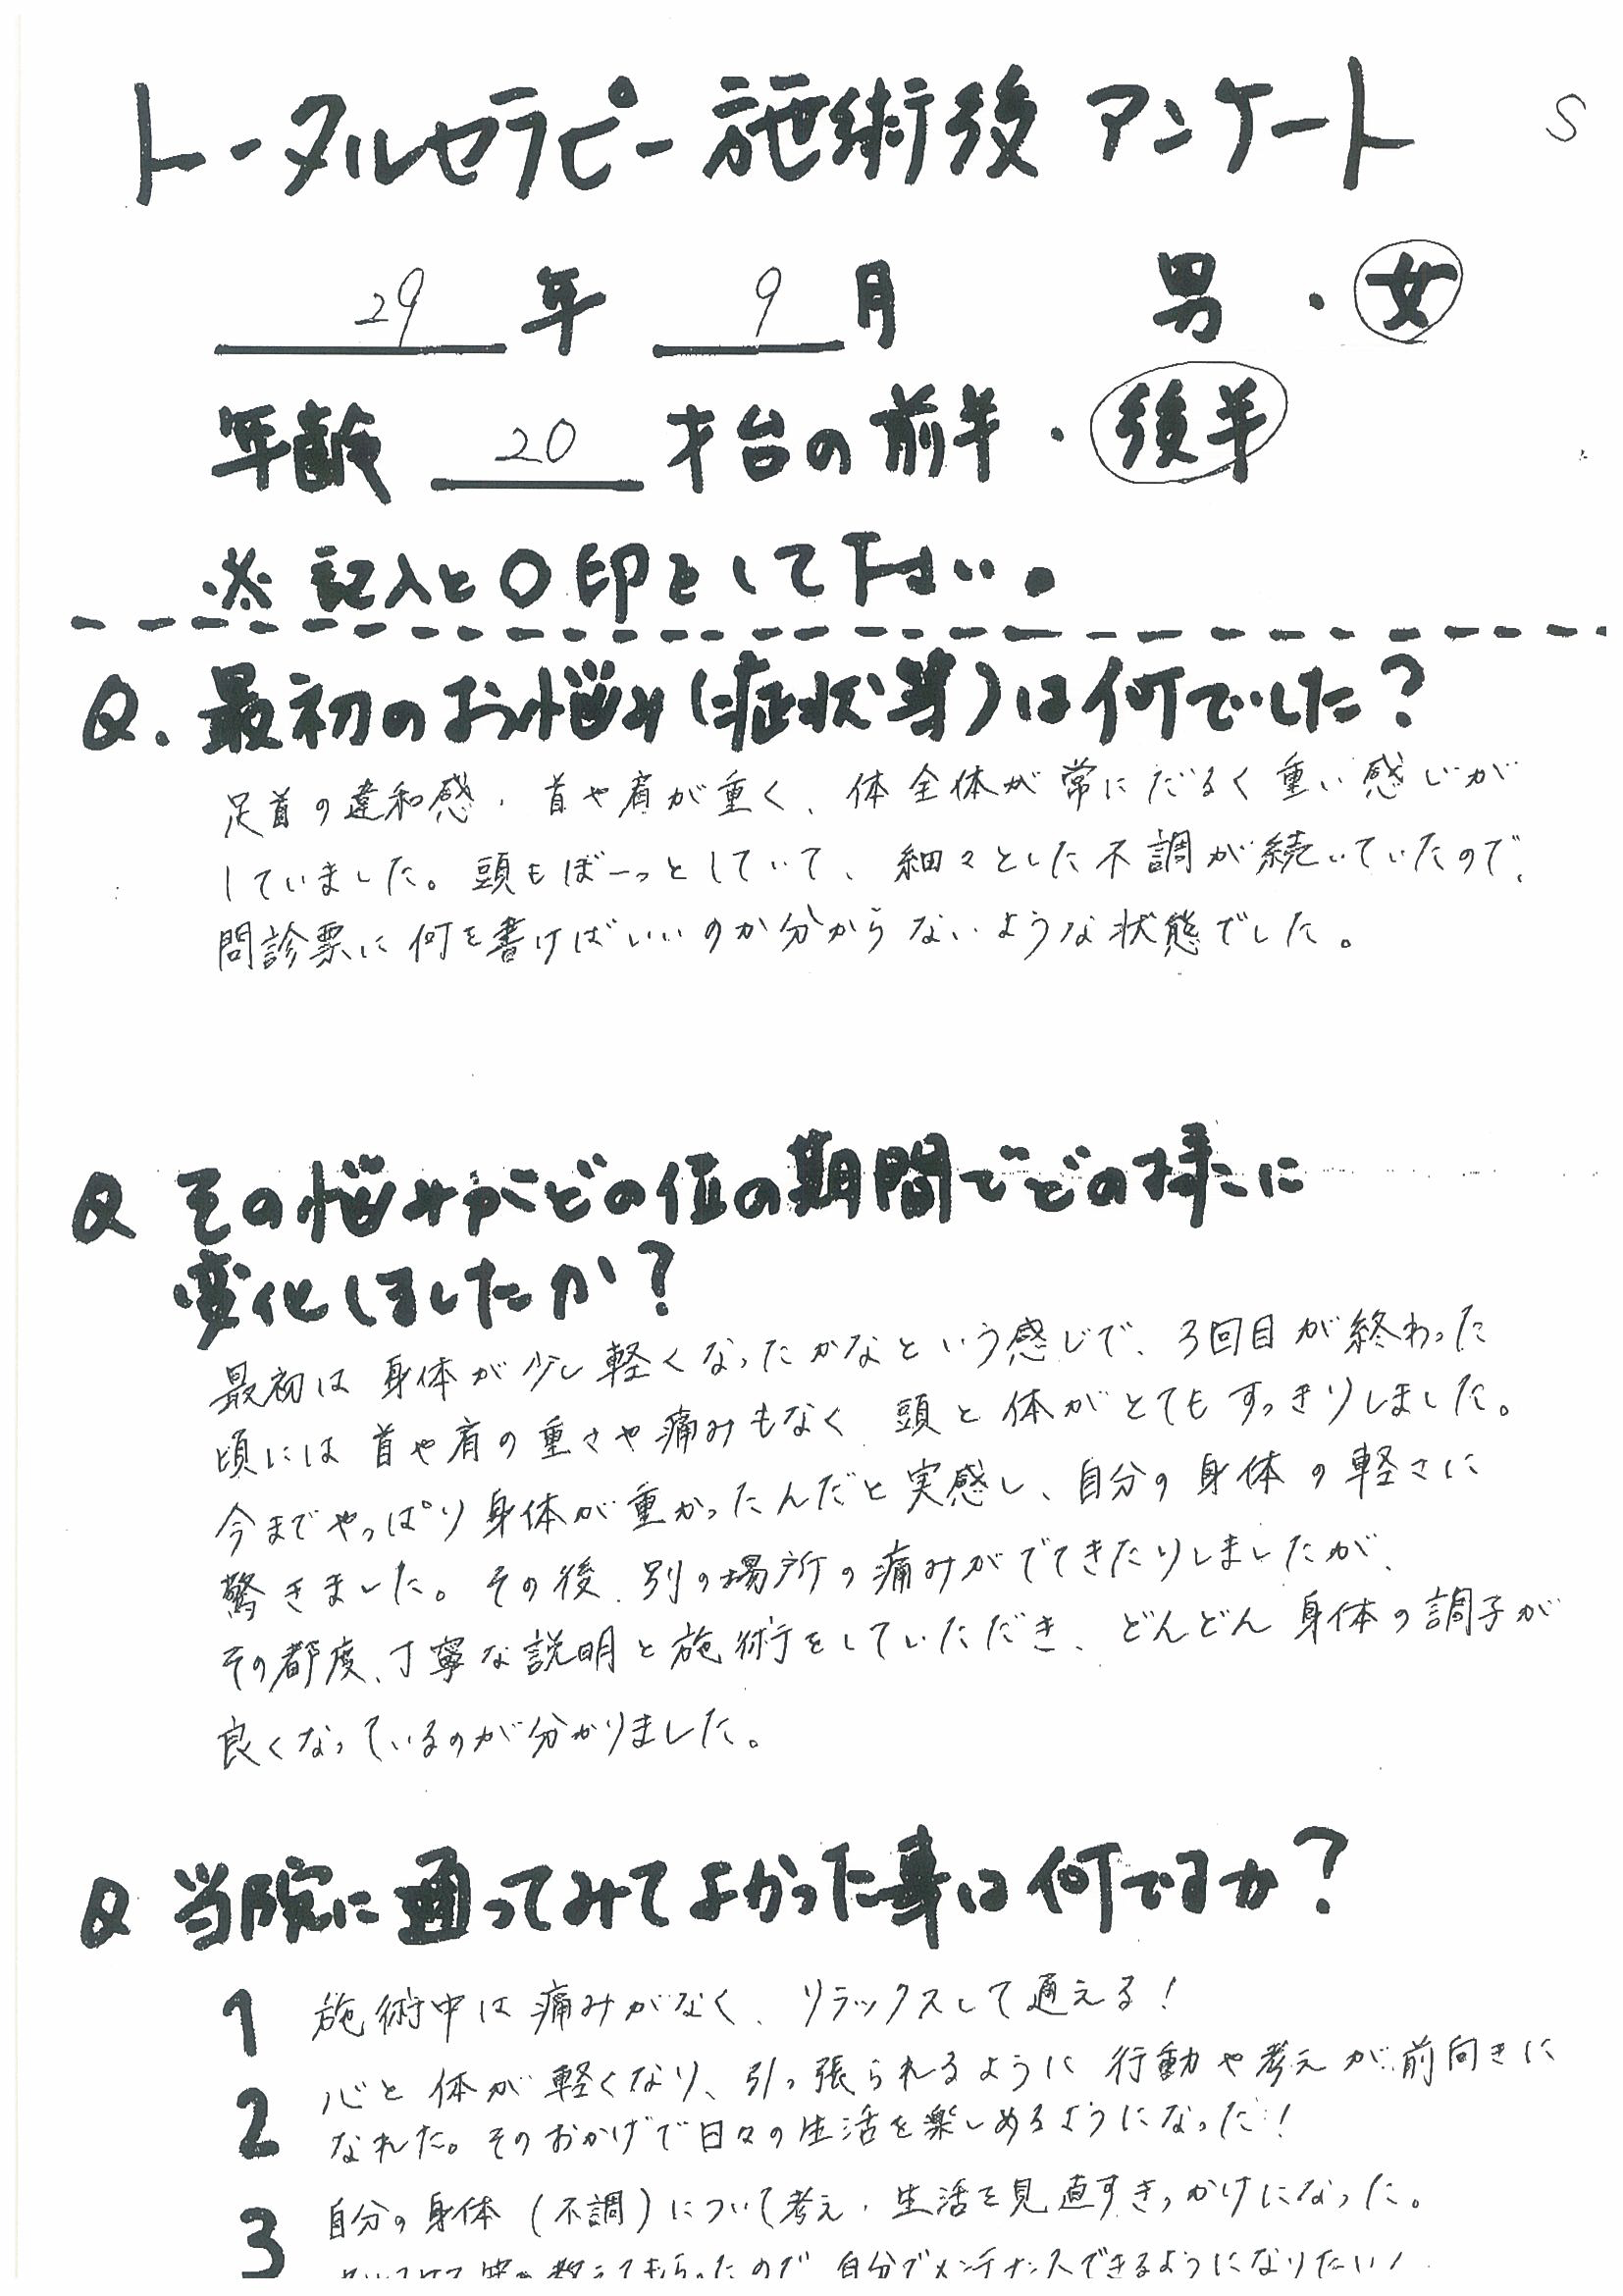 トータルセラピー施術後アンケート
S
29年 9月 男・女
年齢 20 才台の前半・後半
※記入と○印をして下さい。
Q.最初のお悩み(症状等)は何でした?
足首の違和感、首や肩が重く、体全体が常にだるく重い感じが
していました。頭もぼーっとしていて、細々とした不調が続いていたので、
問診票に何を書けばいいのか分からないような状態でした。
Q その悩みがどの位の期間でどの様に
変化しましたか?
最初は身体が少し軽くなったかなという感じで、3回目が終わった
頃には首や肩の重さや痛みもなく、頭と体がとてもすっきりしました。
今までやっぱり身体が重かったんだと実感し、自分の身体の軽さに
驚きました。その後、別の場所の痛みがでてきたりしましたが、
その都度、丁寧な説明と施術をしていただき、どんどん身体の調子が
良くなっているのが分かりました。
Q 当院に通ってみてよかった事は何ですか?
1 施術中は痛みがなく、リラックスして通える!
2 心と体が軽くなり、引っ張られるように行動や考えが前向きに
なれた。そのおかげで日々の生活を楽しめるようになった!
3 自分の身体(不調)について考え、生活を見直すきっかけになった。
教えてもらったので自分でメンテナンスできるようになりたい!